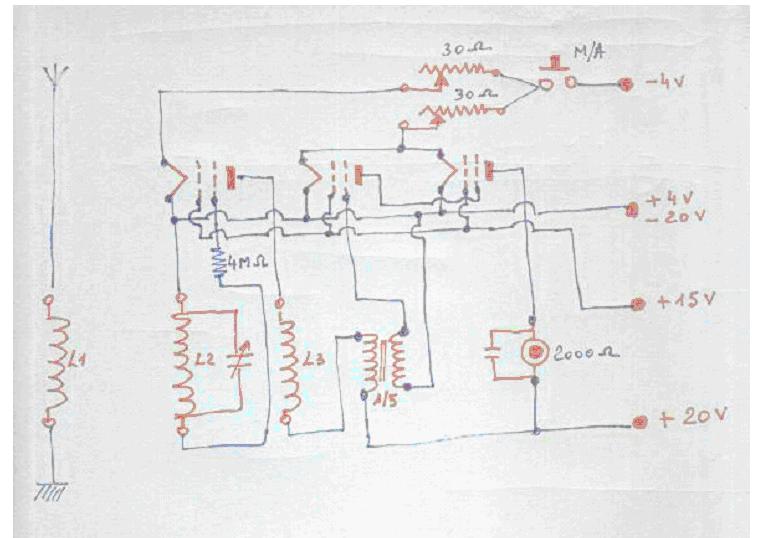 30Ω
M/A
-4V
30Ω
+4V
-20V
4MΩ
+15V
L1
L2
L3
2000Ω
1/5
+20V